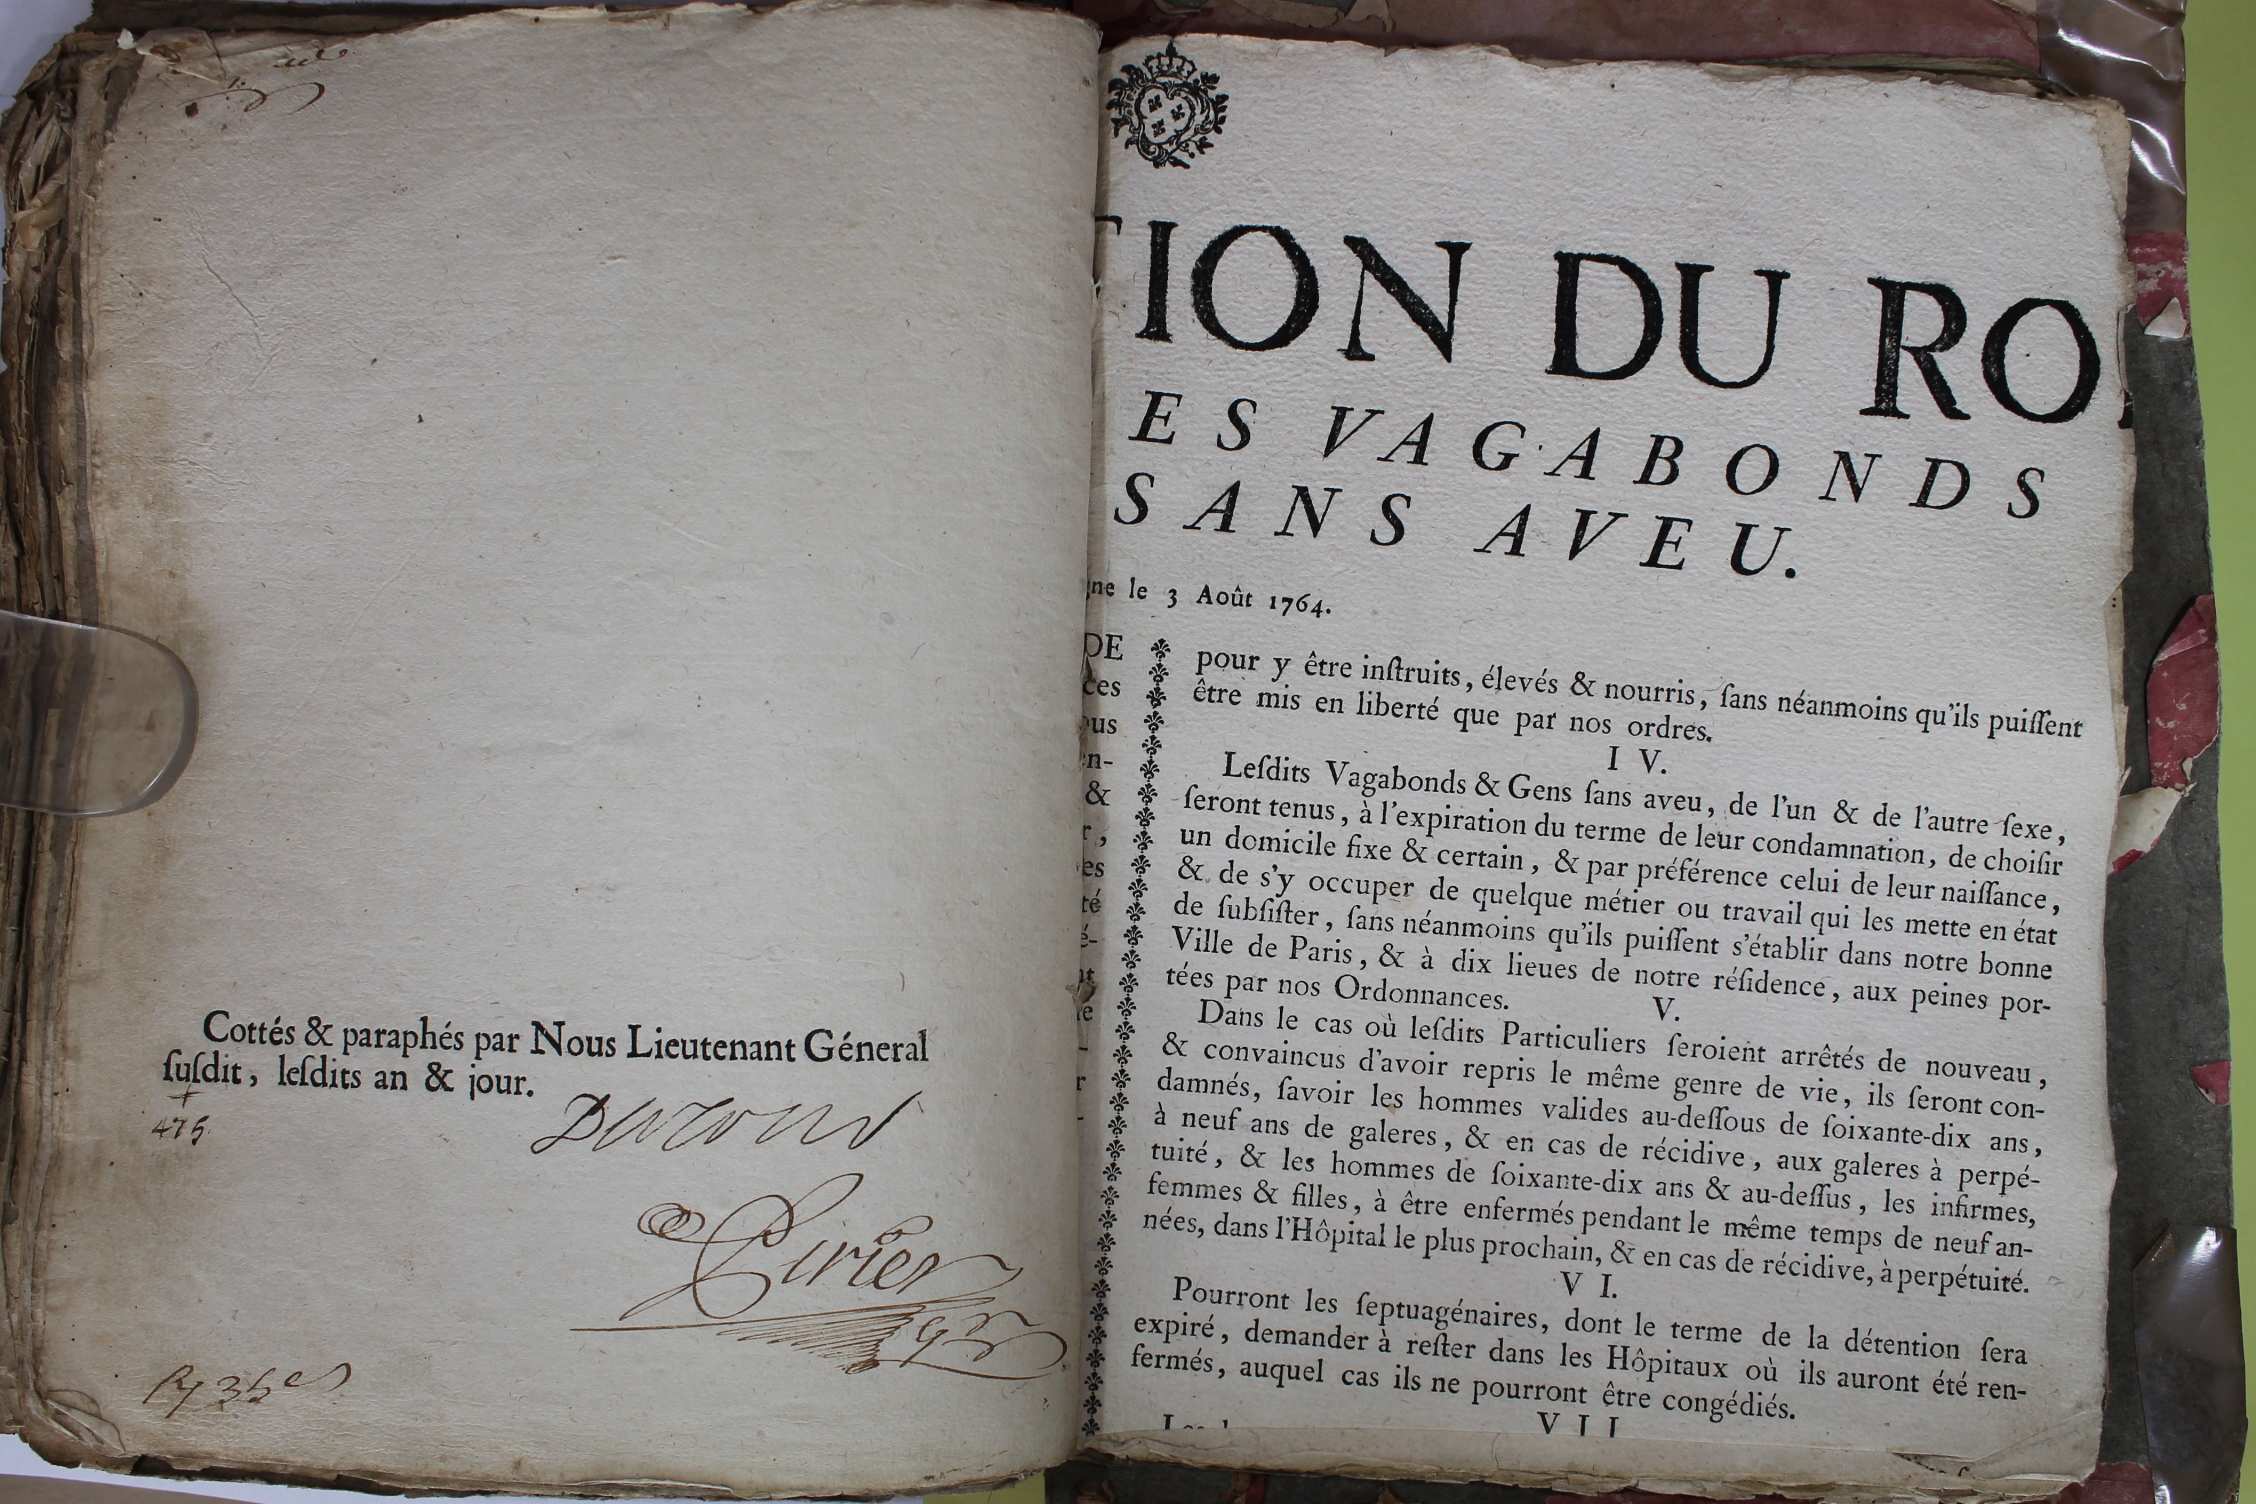 Cottés & paraphés par Nous Lieutenant Géneral
ſuſdit, leſdits an & jour.
475.
Pirier
TION DU ROI
ES VAGABONDS
SANS AVEU.
gne le 3 Août 1764.
DE
ces
ous
en-
&
r,
es
té
é-
nt
re
-
r
-
pour y être inſtruits, élevés & nourris, ſans néanmoins qu'ils puiſſent
être mis en liberté que par nos ordres.
IV.
Leſdits Vagabonds & Gens ſans aveu, de l'un & de l'autre ſexe,
ſeront tenus, à l'expiration du terme de leur condamnation, de choiſir
un domicile fixe & certain, & par préférence celui de leur naiſſance,
& de s'y occuper de quelque métier ou travail qui les mette en état
de ſubſiſter, ſans néanmoins qu'ils puiſſent s'établir dans notre bonne
Ville de Paris, & à dix lieues de notre réſidence, aux peines por-
tées par nos Ordonnances.
V.
Dans le cas où leſdits Particuliers ſeroient arrêtés de nouveau,
& convaincus d'avoir repris le même genre de vie, ils ſeront con-
damnés, ſavoir les hommes valides au-deſſous de ſoixante-dix ans,
à neuf ans de galeres, & en cas de récidive, aux galeres à perpé-
tuité, & les hommes de ſoixante-dix ans & au-deſſus, les infirmes,
femmes & filles, à être enfermés pendant le même temps de neuf an-
nées, dans l'Hôpital le plus prochain, & en cas de récidive, à perpétuité.
VI.
Pourront les ſeptuagénaires, dont le terme de la détention ſera
expiré, demander à reſter dans les Hôpitaux où ils auront été ren-
fermés, auquel cas ils ne pourront être congédiés.
VII